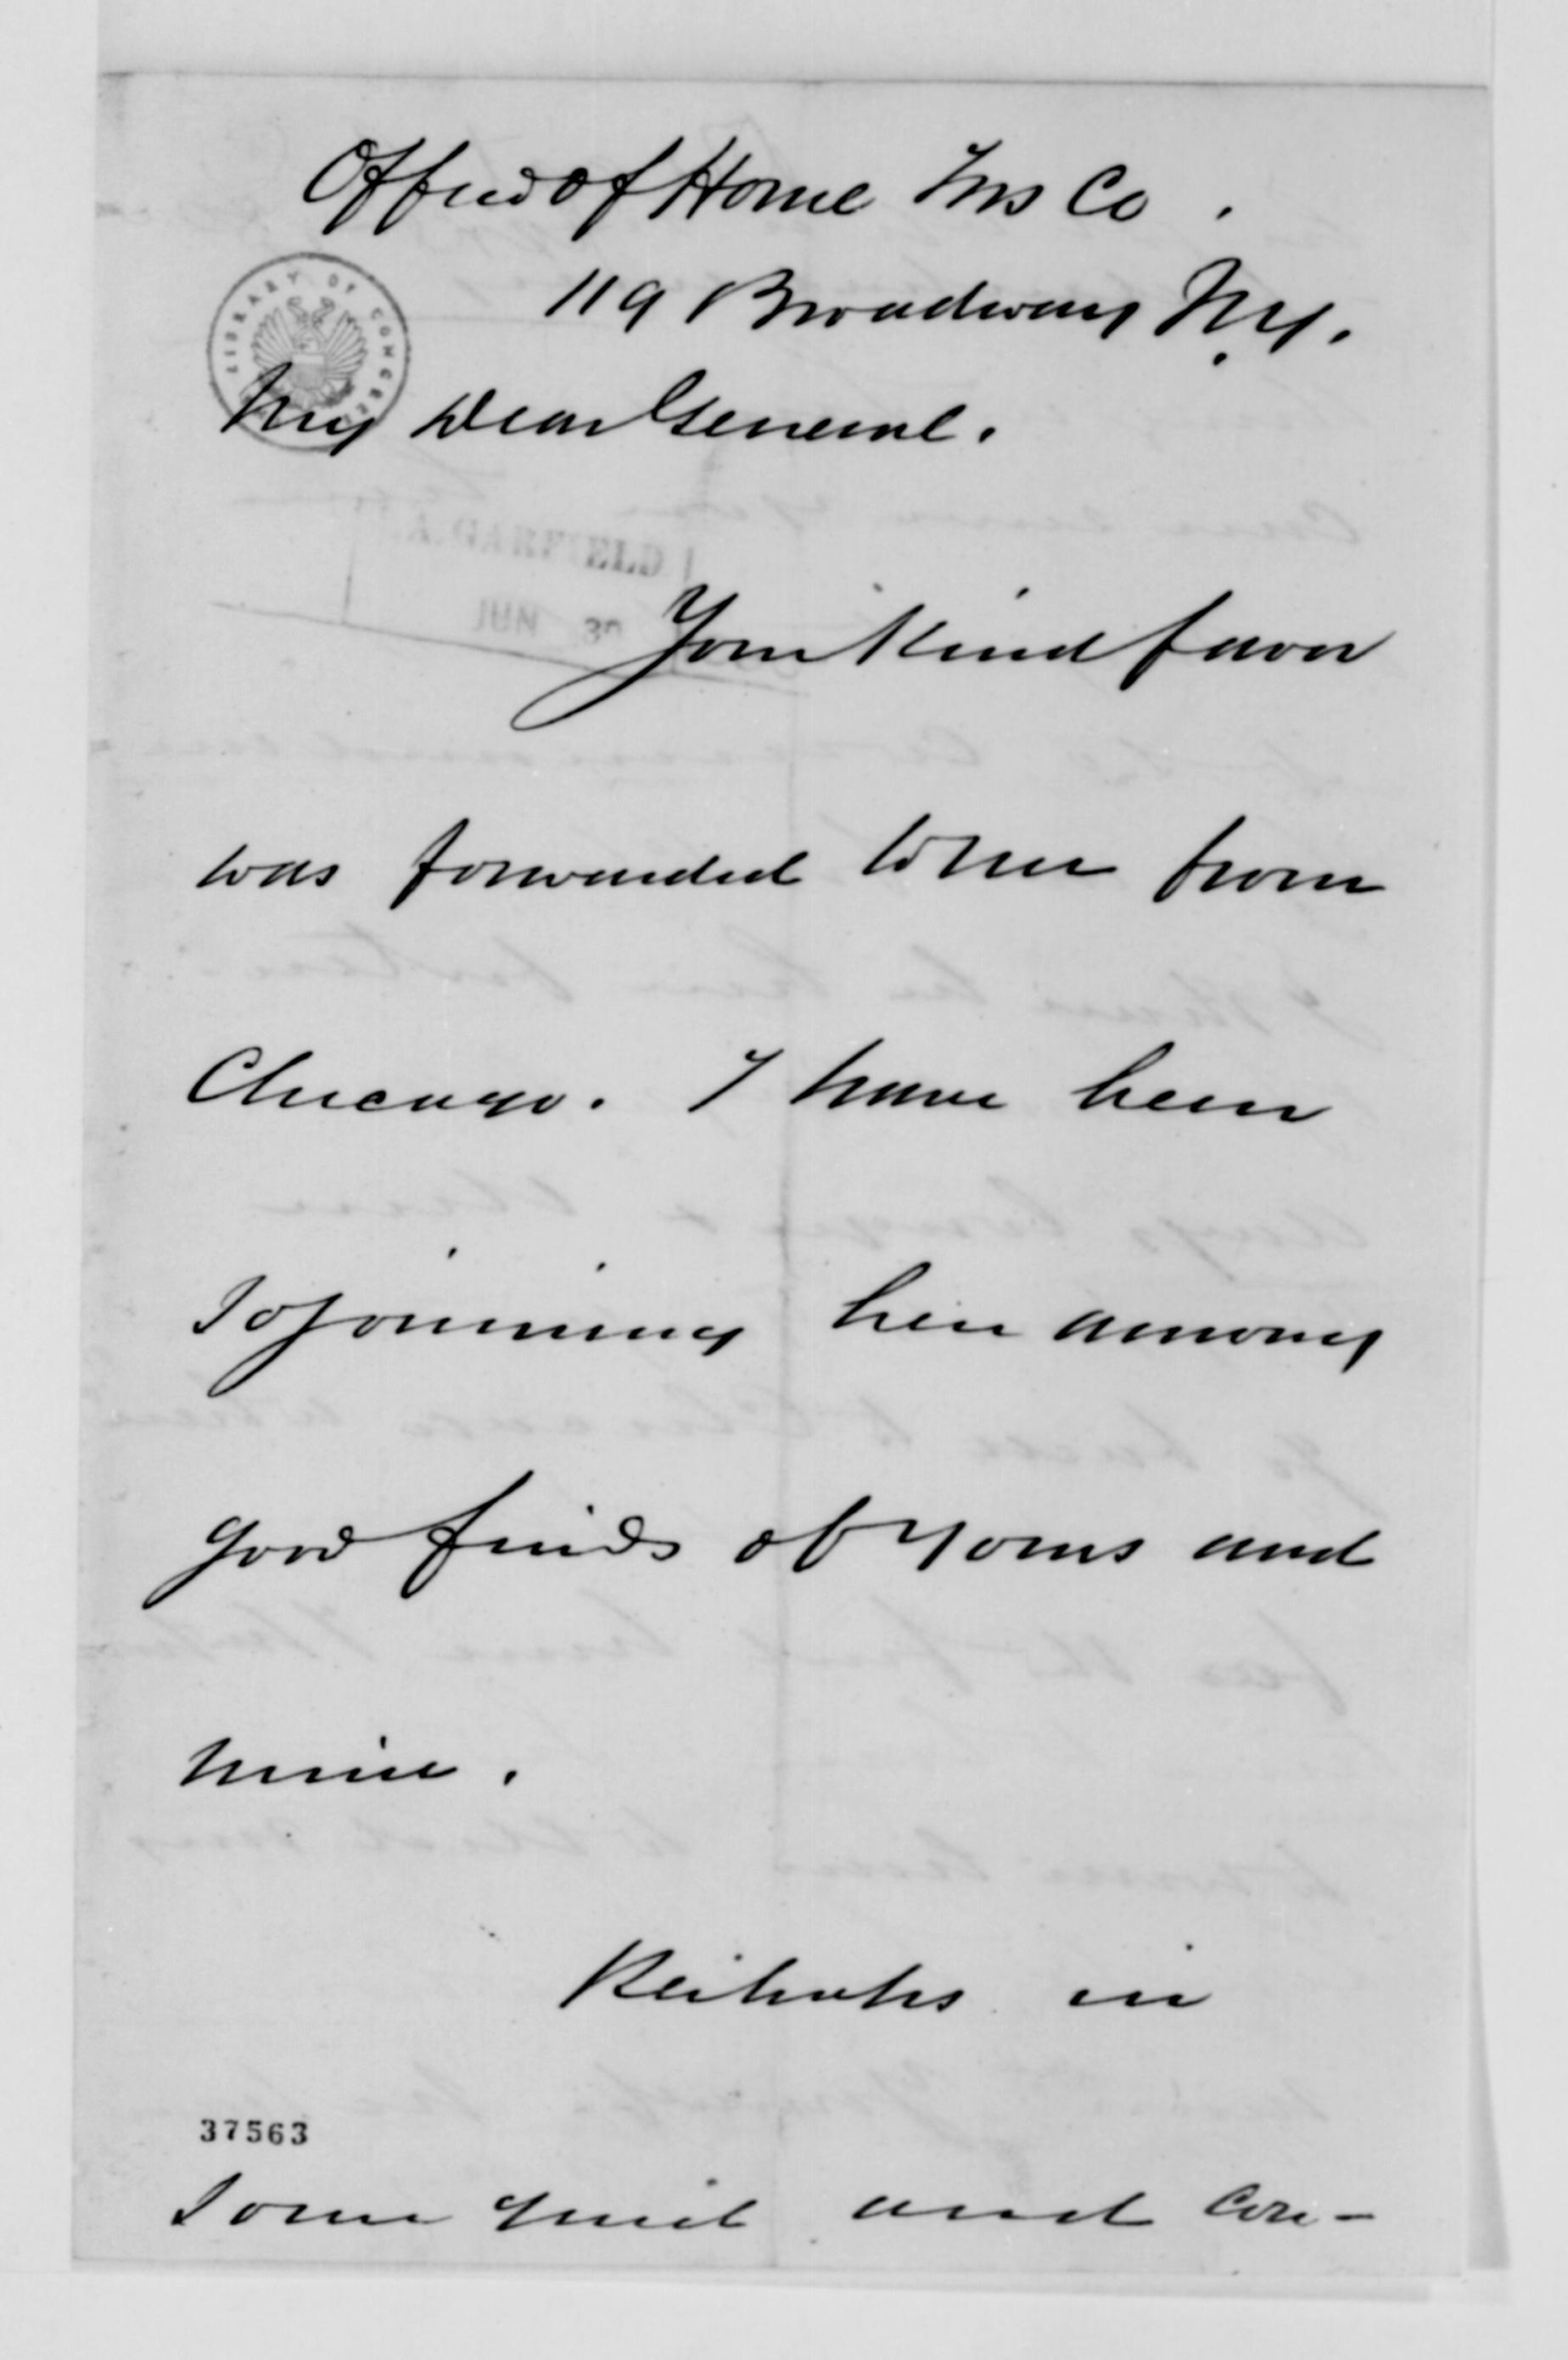 Office of Home Ins Co.
119 Broadway N.Y.
LIBRARY OF CONGRESS
My Dear General.
A. GARFIELD
JUN 30
Your kind favor
was forwarded to me from
Chicago. I have been
sojourning here among
good friends of yours and
mine.
Perhaps in
37563
some quiet and con-